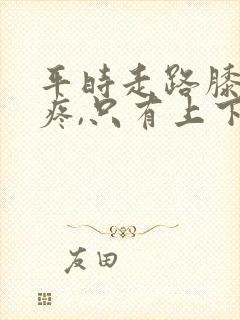 平时走路膝
疼,只有上下
友田